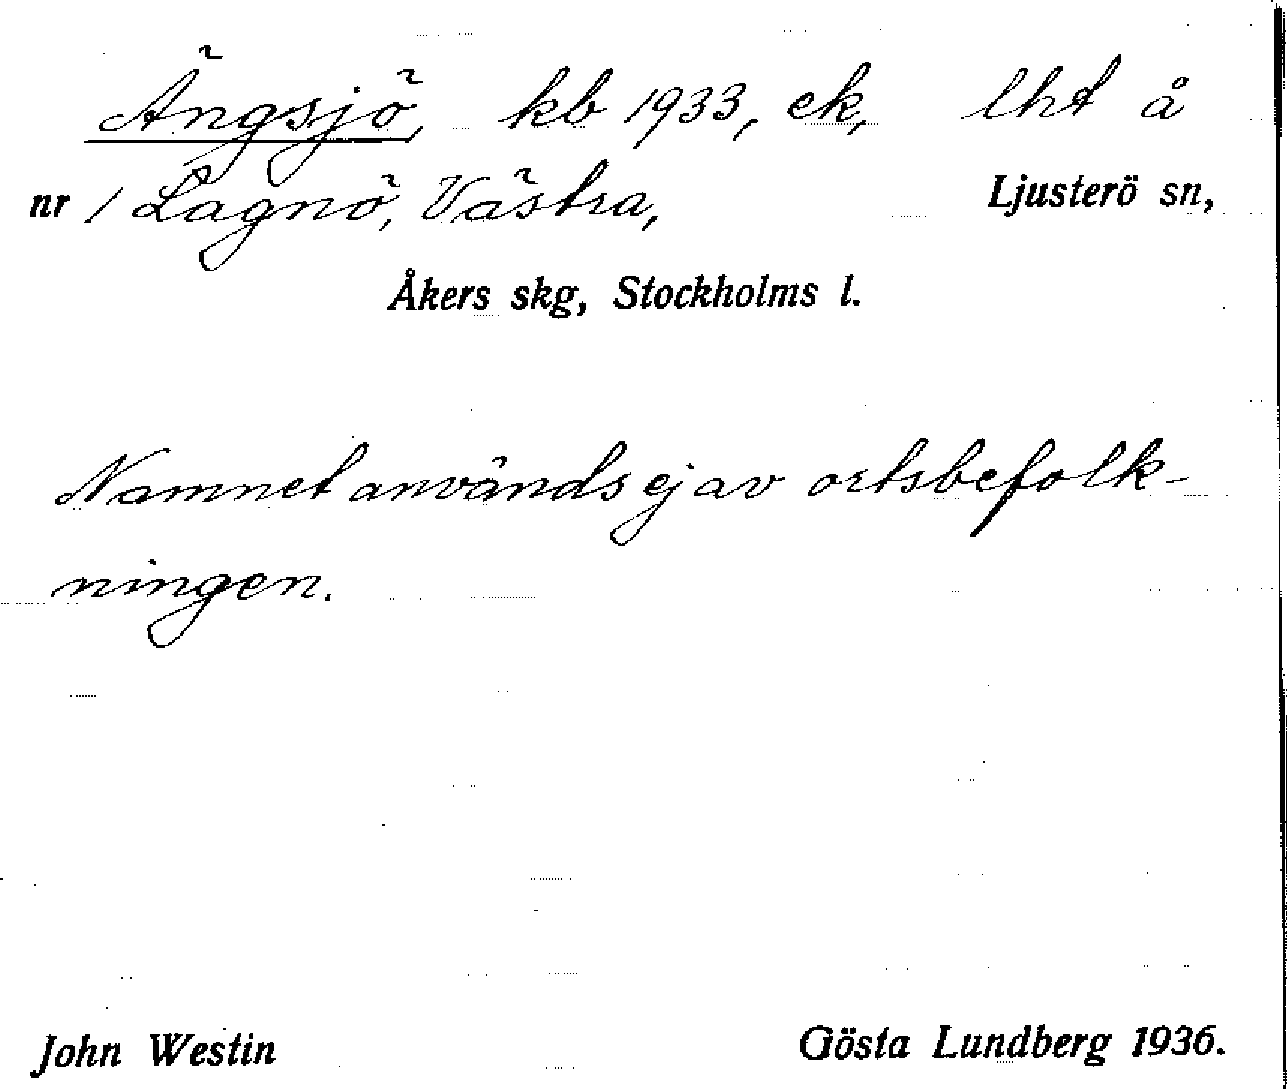 Ängsjö, kb 1933, ek, lht å
nr 1 Lagnö, Västra, Ljusterö sn,
Åkers skg, Stockholms l.
Namnet används ej av ortsbefolk-
ningen.
John Westin Gösta Lundberg 1936.